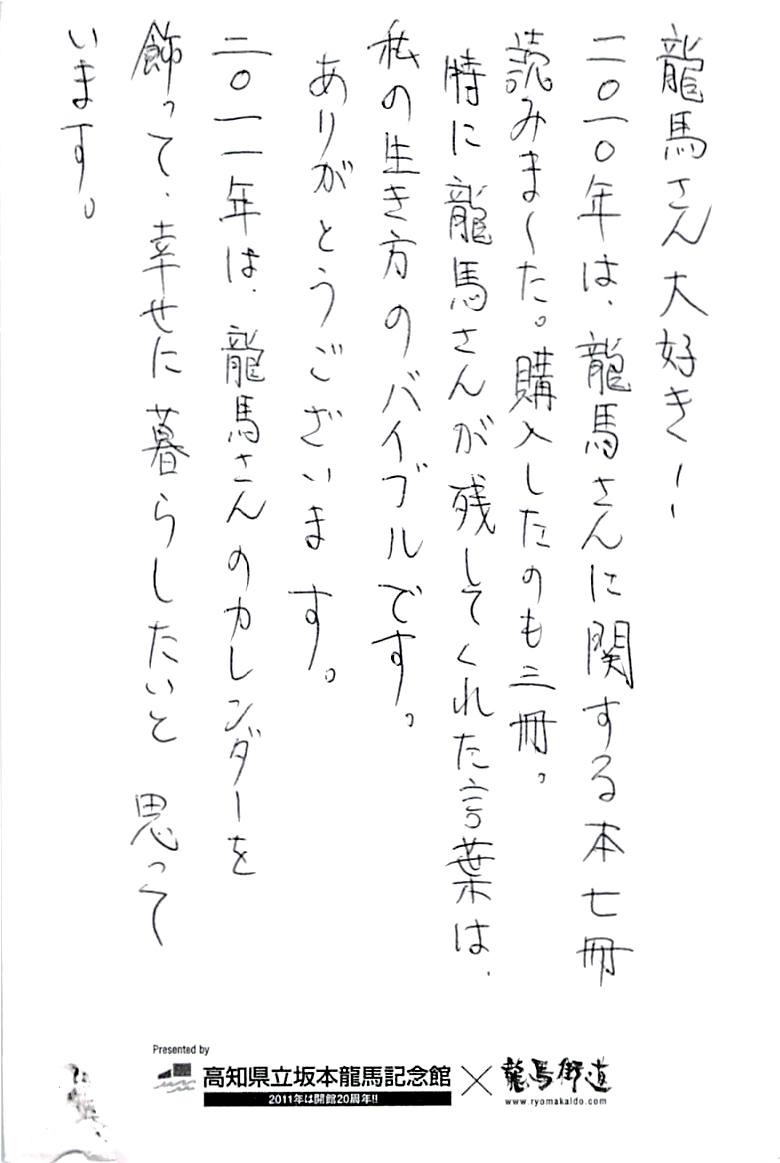 龍馬さん大好き!!
二〇一〇年は、龍馬さんに関する本七冊
読みました。購入したのも三冊。
特に龍馬さんが残してくれた言葉は、
私の生き方のバイブルです。
ありがとうございます。
二〇一一年は、龍馬さんのカレンダーを
飾って、幸せに暮らしたいと思って
います。
Presented by
高知県立坂本龍馬記念館
2011年は開館20周年!!
×
龍馬街道
www.ryomakaido.com